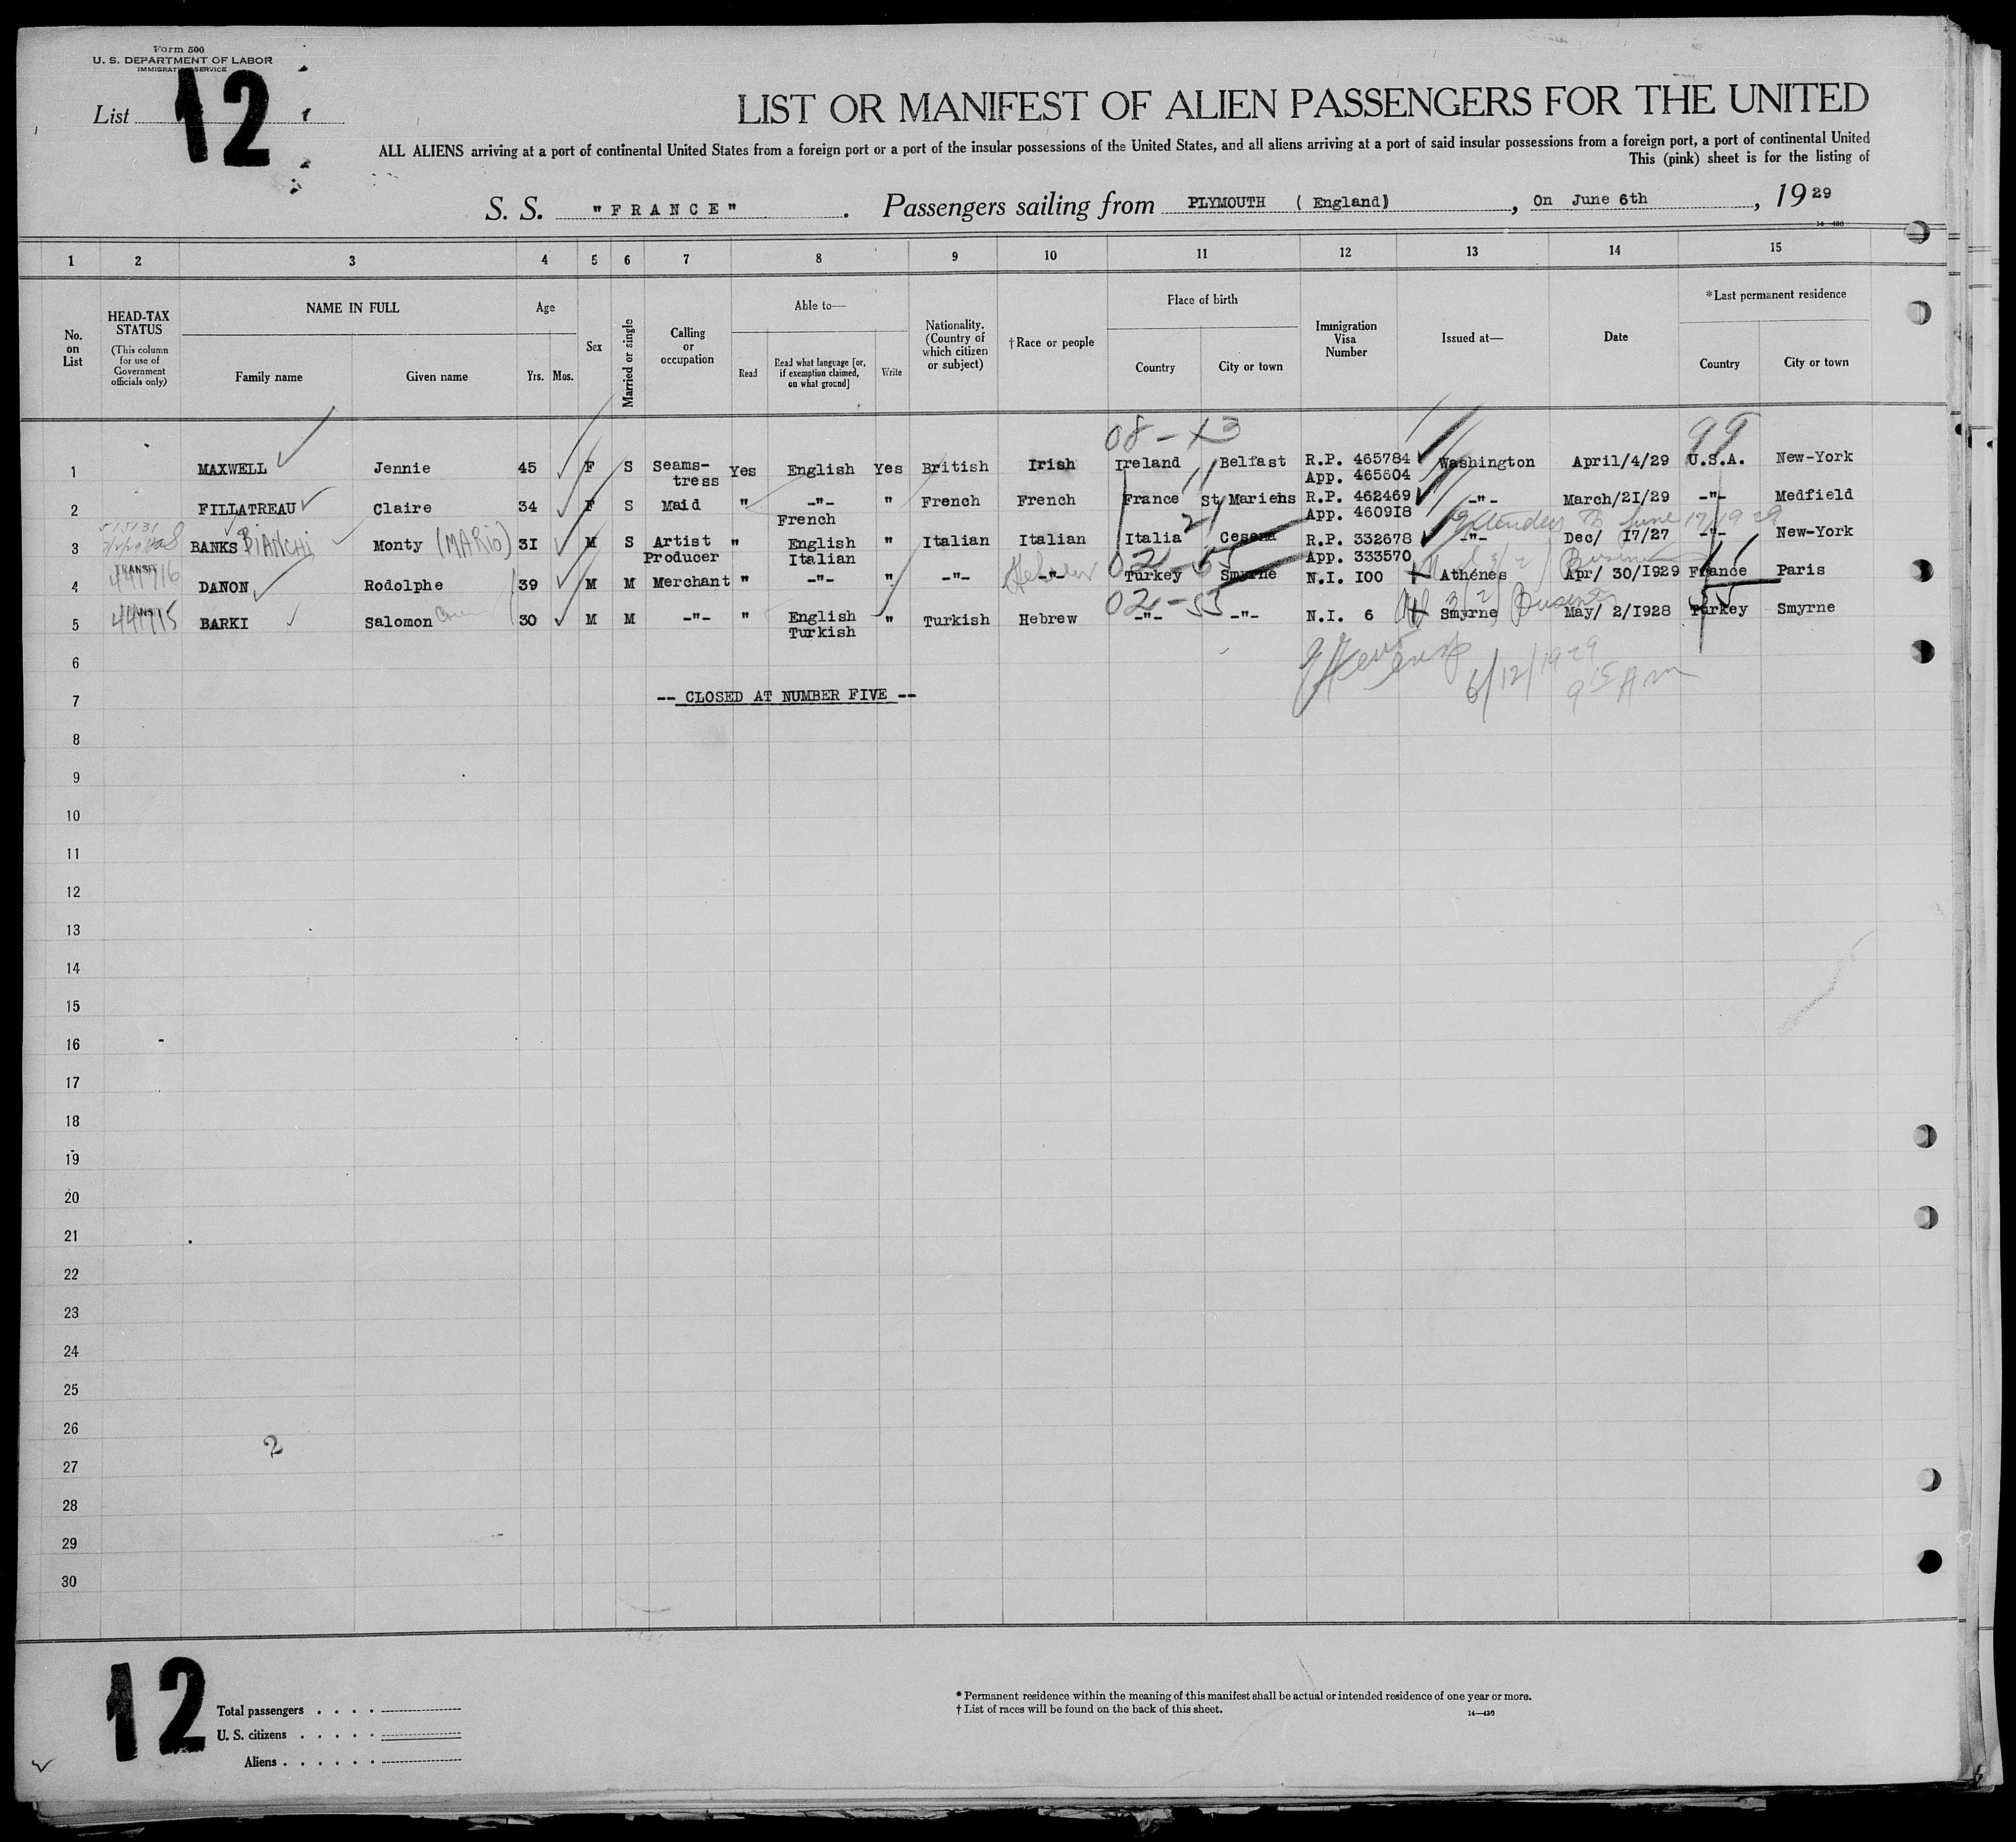 Form 500
U. S. DEPARTMENT OF LABOR
IMMIGRATION SERVICE
List 12
LIST OR MANIFEST OF ALIEN PASSENGERS FOR THE UNITED
ALL ALIENS arriving at a port of continental United States from a foreign port or a port of the insular possessions of the United States, and all aliens arriving at a port of said insular possessions from a foreign port, a port of continental United
This (pink) sheet is for the listing of
S. S. "FRANCE" . Passengers sailing from PLYMOUTH ( England) , On June 6th , 19 29
14—430
1 2 3 4 5 6 7 8 9 10 11 12 13 14 15
No. on List
HEAD-TAX STATUS
(This column for use of Government officials only)
NAME IN FULL
Family name Given name
Age
Yrs. Mos.
Sex
Married or single
Calling or occupation
Able to—
Read Read what language [or, if exemption claimed, on what ground] Write
Nationality. (Country of which citizen or subject)
†Race or people
Place of birth
Country City or town
Immigration Visa Number
Issued at—
Date
*Last permanent residence
Country City or town
08-X3 99
1 MAXWELL Jennie 45 F S Seams- Yes English Yes British Irish Ireland Belfast R.P. 465784 Washington April/4/29 U.S.A. New-York
tress App. 465604
2 FILLATREAU Claire 34 F S Maid " -"- " French French France St Mariens R.P. 462469 -"- March/2I/29 -"- Medfield
French App. 4609I8
June 17/1929
3 BANKS BIANCHI Monty (MARIO) 3I M S Artist " English " Italian Italian Italia Cesena R.P. 332678 -"- Dec/ I7/27 -"- New-York
Producer Italian App. 333570
TRANSIT
02-55
Hebrew
4 DANON Rodolphe 39 M M Merchant " -"- " -"- -"- Turkey Smyrne N.I. I00 Athénes Apr/ 30/I929 France Paris
02-55 3(2) Business 55
5 BARKI Salomon 30 M M -"- " English " Turkish Hebrew -"- -"- N.I. 6 Smyrne May/ 2/I928 Turkey Smyrne
Turkish
6
6/12/1929
9 15 AM
7 -- CLOSED AT NUMBER FIVE --
8
9
10
11
12
13
14
15
16
17
18
19
20
21
22
23
24
25
26
2
27
28
29
30
12
Total passengers
U. S. citizens
Aliens
* Permanent residence within the meaning of this manifest shall be actual or intended residence of one year or more.
† List of races will be found on the back of this sheet.
14—430